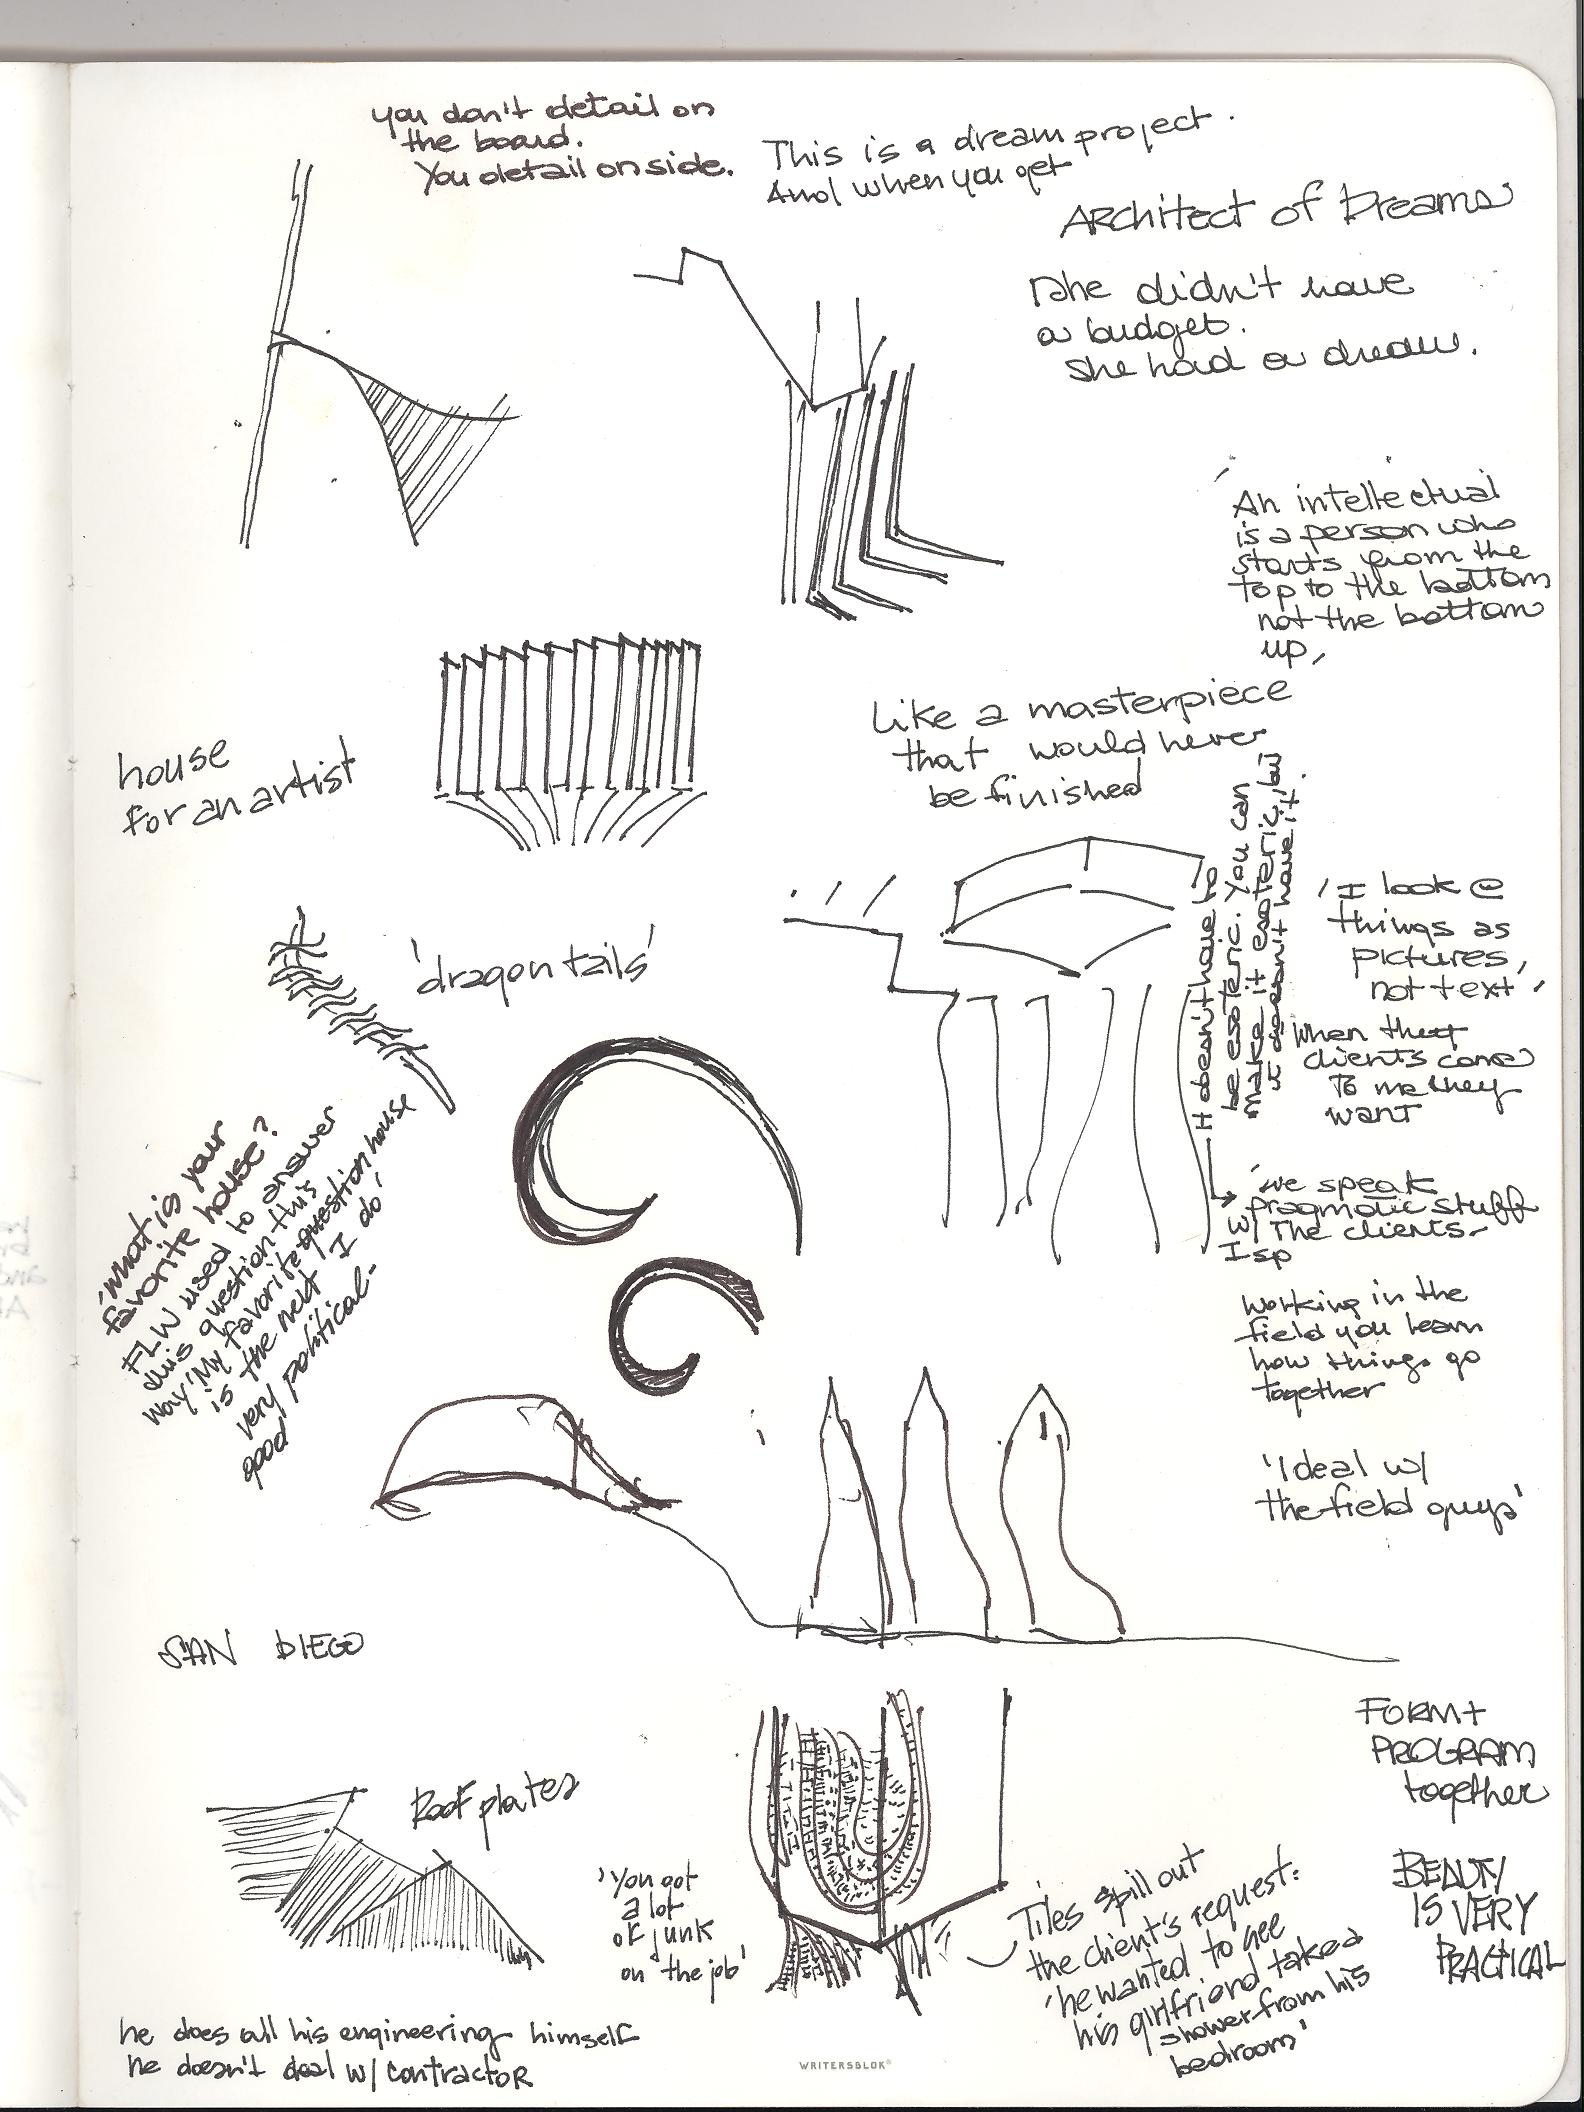 you don't detail on
the board.
You detail on side.
This is a dream project.
And when you get
Architect of Dreams
She didn't have
a budget.
She had a dream.
'An intellectual
is a person who
starts from the
top to the bottom
not the bottom
up,
Like a masterpiece
that would never
be finished
house
for an artist
'dragon tails'
It doesn't have to
be esoteric. You can
make it esoteric, but
it doesn't have it.
'I look @
things as
pictures,
not text'
When the
clients come
to me they
want
'we speak
pragmatic stuff
w/ the clients-
I sp
'What is your
favorite house?
FLW used to answer
this question this
way 'My favorite question house
is the next I do'
very political-
good
working in the
field you learn
how things go
together
'I deal w/
the field guys'
SAN DIEGO
Roof plates
FORM +
PROGRAM
together
'You got
a lot
of junk
on the job'
Tiles spill out
the client's request:
'he wanted to see
his girlfriend taked
shower from his
bedroom'
BEAUTY
IS VERY
PRACTICAL
he does all his engineering himself
he doesn't deal w/ contractor
WRITERSBLOK®